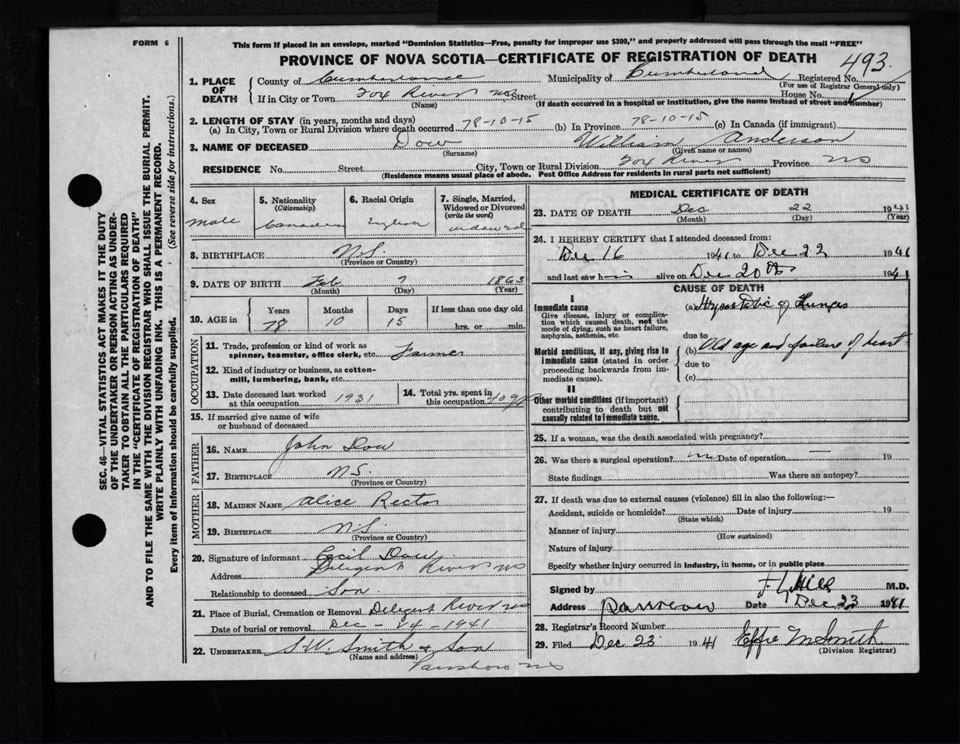 FORM 6
This form if placed in an envelope, marked "Dominion Statistics—Free, penalty for improper use $300," and properly addressed will pass through the mail "FREE"
PROVINCE OF NOVA SCOTIA—CERTIFICATE OF REGISTRATION OF DEATH
493
1. PLACE OF DEATH
County of Cumberland Municipality of Cumberland Registered No.
(For use of Registrar General only)
If in City or Town Fox River NS Street House No.
(Name) (If death occurred in a hospital or institution, give the name instead of street and number)
2. LENGTH OF STAY (in years, months and days)
(a) In City, Town or Rural Division where death occurred 78-10-15 (b) In Province 78-10-15 (c) In Canada (if immigrant)
3. NAME OF DECEASED Dow William Anderson
(Surname) (Given name or names)
RESIDENCE No. Street City, Town or Rural Division Fox River Province NS
(Residence means usual place of abode. Post Office Address for residents in rural parts not sufficient)
4. Sex
male
5. Nationality
(Citizenship)
Canadian
6. Racial Origin
English
7. Single, Married, Widowed or Divorced
(write the word)
widowed
8. BIRTHPLACE N.S.
(Province or Country)
9. DATE OF BIRTH Feb 7 1863
(Month) (Day) (Year)
10. AGE in
Years Months Days If less than one day old
78 10 15 hrs. or min.
OCCUPATION
11. Trade, profession or kind of work as spinner, teamster, office clerk, etc. Farmer
12. Kind of industry or business, as cotton-mill, lumbering, bank, etc.
13. Date deceased last worked at this occupation 1931
14. Total yrs. spent in this occupation 40 yrs
15. If married give name of wife or husband of deceased
FATHER
16. NAME John Dow
17. BIRTHPLACE N.S.
(Province or Country)
MOTHER
18. MAIDEN NAME Alice Rector
19. BIRTHPLACE N.S.
(Province or Country)
20. Signature of informant Cecil Dow
Address Diligent River NS
Relationship to deceased Son
21. Place of Burial, Cremation or Removal Diligent River NS
Date of burial or removal Dec - 24 - 1941
22. UNDERTAKER S.W. Smith & Son
(Name and address)
Parrsboro NS
MEDICAL CERTIFICATE OF DEATH
23. DATE OF DEATH Dec 22 1941
(Month) (Day) (Year)
24. I HEREBY CERTIFY that I attended deceased from:
Dec 16 1941 to Dec 22 1941
and last saw him alive on Dec 20th 1941
CAUSE OF DEATH
I
Immediate cause
Give disease, injury or complication which caused death, not the mode of dying, such as heart failure, asphyxia, asthenia, etc.
(a) Hypostatic of Lungs
due to
Morbid conditions, if any, giving rise to immediate cause (stated in order proceeding backwards from immediate cause).
(b) Old age and failure of heart
due to
(c)
II
Other morbid conditions (if important) contributing to death but not causally related to immediate cause.
25. If a woman, was the death associated with pregnancy?
26. Was there a surgical operation? no Date of operation — 19
State findings Was there an autopsy?
27. If death was due to external causes (violence) fill in also the following:—
Accident, suicide or homicide? Date of injury 19
(State which)
Manner of injury
(How sustained)
Nature of injury
Specify whether injury occurred in industry, in home, or in public place
Signed by Hill M.D.
Address Parrsboro Date Dec 23 1941
28. Registrar's Record Number
29. Filed Dec 23 1941 Effie M Smith
(Division Registrar)
SEC. 46—VITAL STATISTICS ACT MAKES IT THE DUTY
OF THE UNDERTAKER OR PERSON ACTING AS UNDERTAKER TO OBTAIN ALL THE PARTICULARS REQUIRED
IN THE "CERTIFICATE OF REGISTRATION OF DEATH"
AND TO FILE THE SAME WITH THE DIVISION REGISTRAR WHO SHALL ISSUE THE BURIAL PERMIT.
WRITE PLAINLY WITH UNFADING INK. THIS IS A PERMANENT RECORD.
Every item of Information should be carefully supplied. (See reverse side for instructions.)